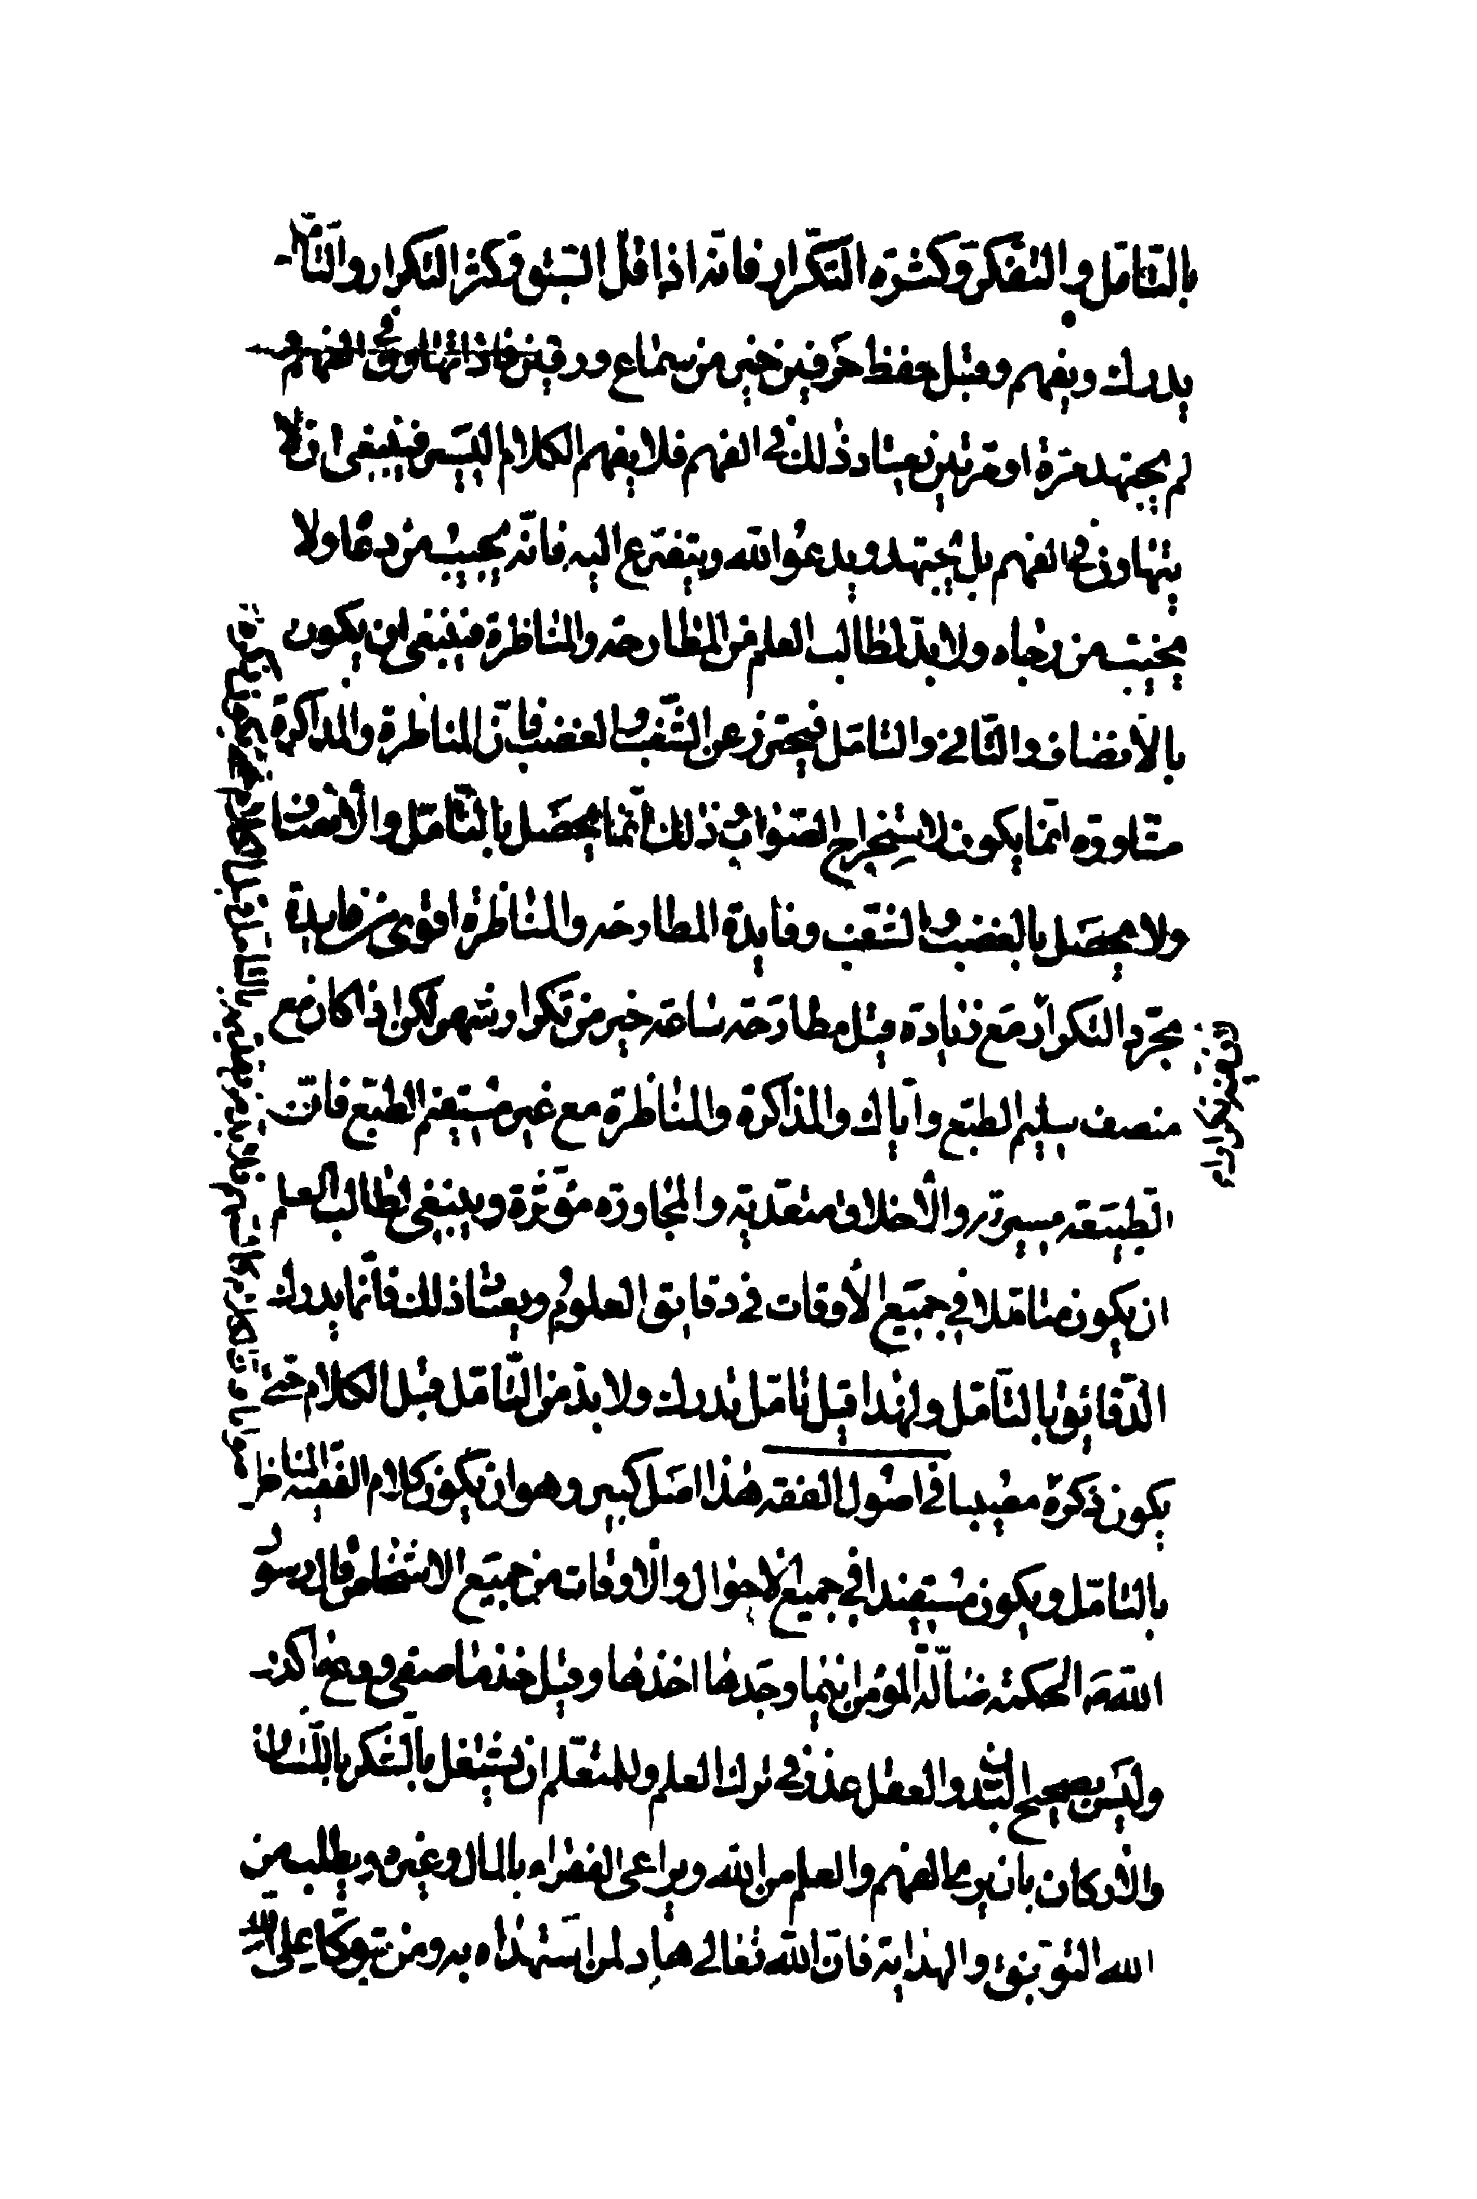 بالتأمل والتفكر وكثرة التكرار فانه اذا قل السبق وكثر التكرار والتأمل
يدرك ويفهم وقيل حفظ حرفين خير من سماع ورقين فاذا تهاون في الفهم و
لم يجتهد مرة او مرتين يعتاد ذلك في الفهم فلا يفهم الكلام اليسير فينبغي ان لا
يتهاون في الفهم بل يجتهد ويدعوا الله ويتضرع اليه فانه يجيب من دعا ولا
يخيب من رجاه ولا بد لطالب العلم من المطارحة والمناظرة فينبغي ان يكون
بالانصاف والتأني والتأمل فيحترز عن الشغب والغضب فان المناظرة والمذاكرة
مشاورة انما يكون لاستخراج الصواب ذلك انما يحصل بالتأمل والانصاف
ولا يحصل بالغضب والشغب وفايدة المطارحة والمناظرة اقوى من فايدة
مجرد التكرار مع زيادة قيل مطارحة ساعة خير من تكرار شهر لكن اذا كان مع
منصف سليم الطبع واياك والمذاكرة والمناظرة مع غير مستقيم الطبع فان
الطبيعة مسيرته والاخلاق متعدية والمجاورة مؤثرة وينبغي لطالب العلم
ان يكون متأملا في جميع الاوقات في دقايق العلوم ويعتاد ذلك فانما يدرك
الدقائق بالتأمل ولهذا قيل تأمل تدرك ولا بد من التأمل قبل الكلام حتى
يكون ذكره مصيبا في اصول الفقه هذا اصل كبير وهو ان يكون كلام الفقيه المناظر
بالتأمل ويكون مستفيدا في جميع الاحوال والاوقات من جميع الاشخاص قال رسول
الله صم الحكمة ضالة المؤمن اينما وجدها اخذها وقيل خذ ما صفى ودع ما كدر
وليس بصحيح البدن والعقل عذر في ترك العلم وللمتعلم ان يشتغل بالشكر باللسان
والاركان بان يرى الفهم والعلم من الله ويراعي الفقراء بالمال وغيره ويطلب من
الله التوفيق والهداية فان الله تعالى هاد لمن استهداه به ومن يتوكل على الله